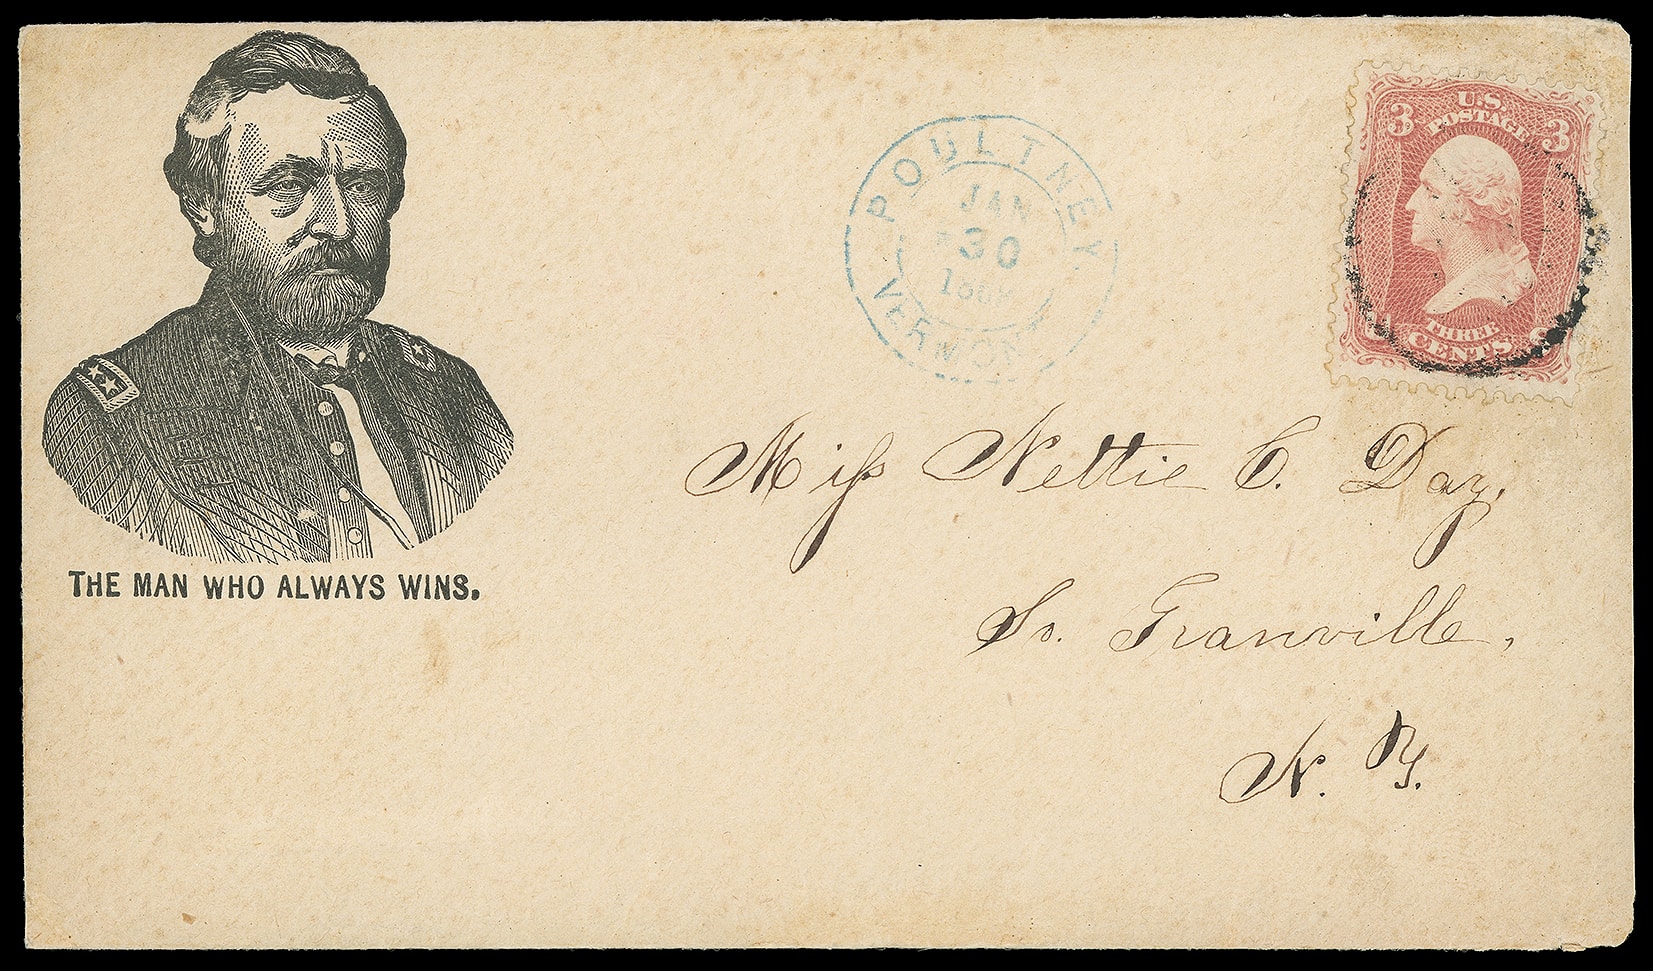 THE MAN WHO ALWAYS WINS.
POULTNEY
JAN
30
VERMONT
3 U.S. 3
POSTAGE
THREE
CENTS
Miss Nettie C. Day,
So. Granville,
N. Y.